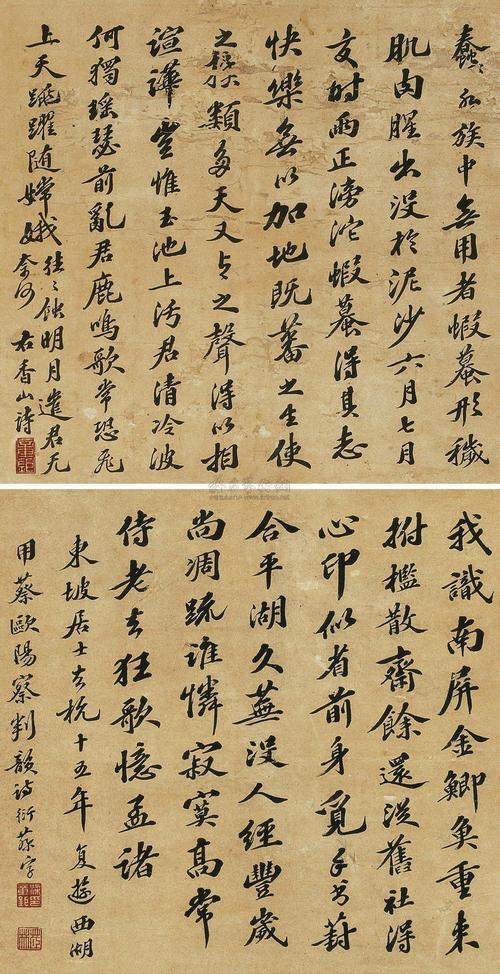 蠢々水族中無用者蝦蟇形穢
肌肉腥出没於泥沙六月七月
交時雨正滂沱蝦蟇得其志
快樂無以加地既蕃之生使
之族類多天又与之聲得以相
諠譁豈惟玉池上污君清冷波
何獨瑶瑟前亂君鹿鳴歌常恐飛
上天跳躍随嫦娥往々蝕明月遣君无
奈何
右香山詩
我識南屏金鯽魚重来
拊檻散齋餘還從舊社得
心印似省前身覓手書葑
合平湖久蕪没人經豐歲
尚凋疏誰憐寂寞高常
侍老去狂歌憶孟諸
東坡居士去杭十五年復遊西湖
用蔡歐陽察判韻詩